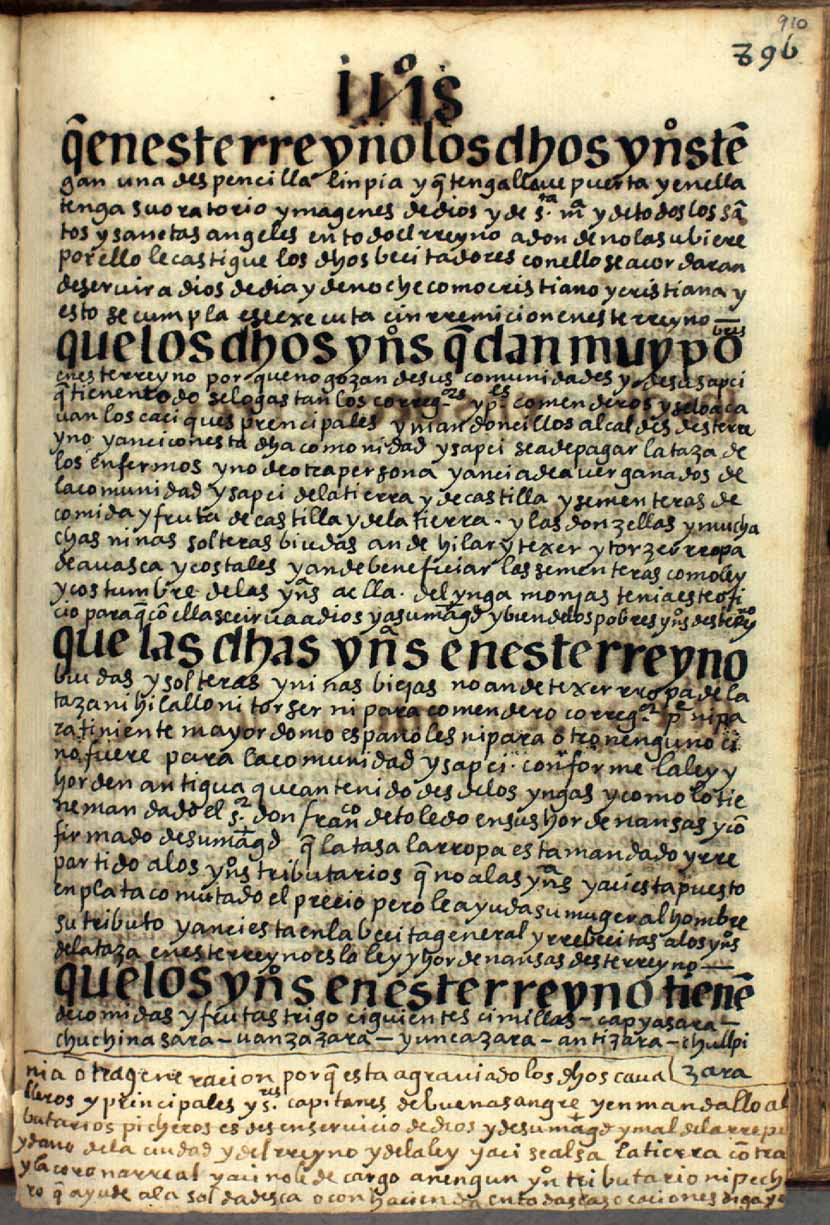 910
896
ỉ uº is
q̃ en este rreyno los dhos ynºs tē
gan una despencilla linpia y q̃ tenga lleve puerta y en ella
tenga su oratorio ymagenes de dios y de s.ta m.a y de todos los sā
tos y sanctas angeles en todo el rreyno a don de no las ubiere
por ello le castigue los dhos becitadores con ello se acordaran
de servir a dios de dia y de noche como cristiano y cristiana y
esto se cumpla ese exe cuta cin rremicion en este rreyno
que los dhos ynºs q̃ dan muy po
bres
en este rreyno por que no gozan de sus comunidades y de su sapci
q̃ tienen todo se lo gastan los correg.res y p.es comenderos y se lo aca
uan los caciques prencipales y mandoncillos alcaldes deste rre
yno y anci con esta dha comonidad y sapci se a de pagar la taza de
los enfermos y no de otra persona y anci a de aver ganados de
la comunidad y sapci de la tierra y de castilla y sementeras de
comida y fruta de castilla y de la tierra. y las donzellas y mucha
chas niñas solteras biudas an de hilar y texer y torzer rropa
de auasca y costales y an de beneficiar las sementeras como ley
y costumbre de las yn.as aclla. del ynga monjas tenia este ofi
cio para q̃ cō ella se cirva a dios y a su mag.d y bien de los pobres ynºs deste rreyno
que las dhas yñ.as en este rreyno
biudas y solteras y niñas biejas no an de texer rropa de la
taza ni hilallo ni torser ni para comendero correg.or p.e ni pa
ra tiniente mayordomo españoles ni para otro nenguno ci
no fuere para la comunidad y sapci. conforme la ley y
horden antigua que an tenido desde los yngas y como lo tie
ne mandado el s.r don fran.co de toledo en sus hordenansas y cō
firmado de su mag.d q̃ la tasa la rropa esta mandado y rre
partido a los ynºs tributarios q̃ no a las yn.as y aci esta puesto
en plata comutado el precio pero le ayuda su muger al hombre
su tributo y anci esta en la becita general y rrebecitas a los ynºs
de la taza en este rreyno es la ley y hordenansas deste rreyno —
que los ynºs en este rreyno tienē
de comidas y frutas trigo ciguientes cimillas – capya sara –
chuchina sara – uanza zara – yunca zara – anti zara – chullpi
zara
nia otra generacion por q̃ esta agraviado los dhos caua
lleros y principales y s.res capitanes de buena sangre y en mandallo a l
butarios picheros es desenservicio de dios y de su mag.d y mal de la rrepu
y dano de la ciudad y del rreyno y de la ley y aci se alsa la tierra cōtra
y la corona rreal y aci no le de cargo a nengun yn.º tributario ni peche
ro q̃ ayude a la soldadesca o con hacienda en todas las ocaciones diga y